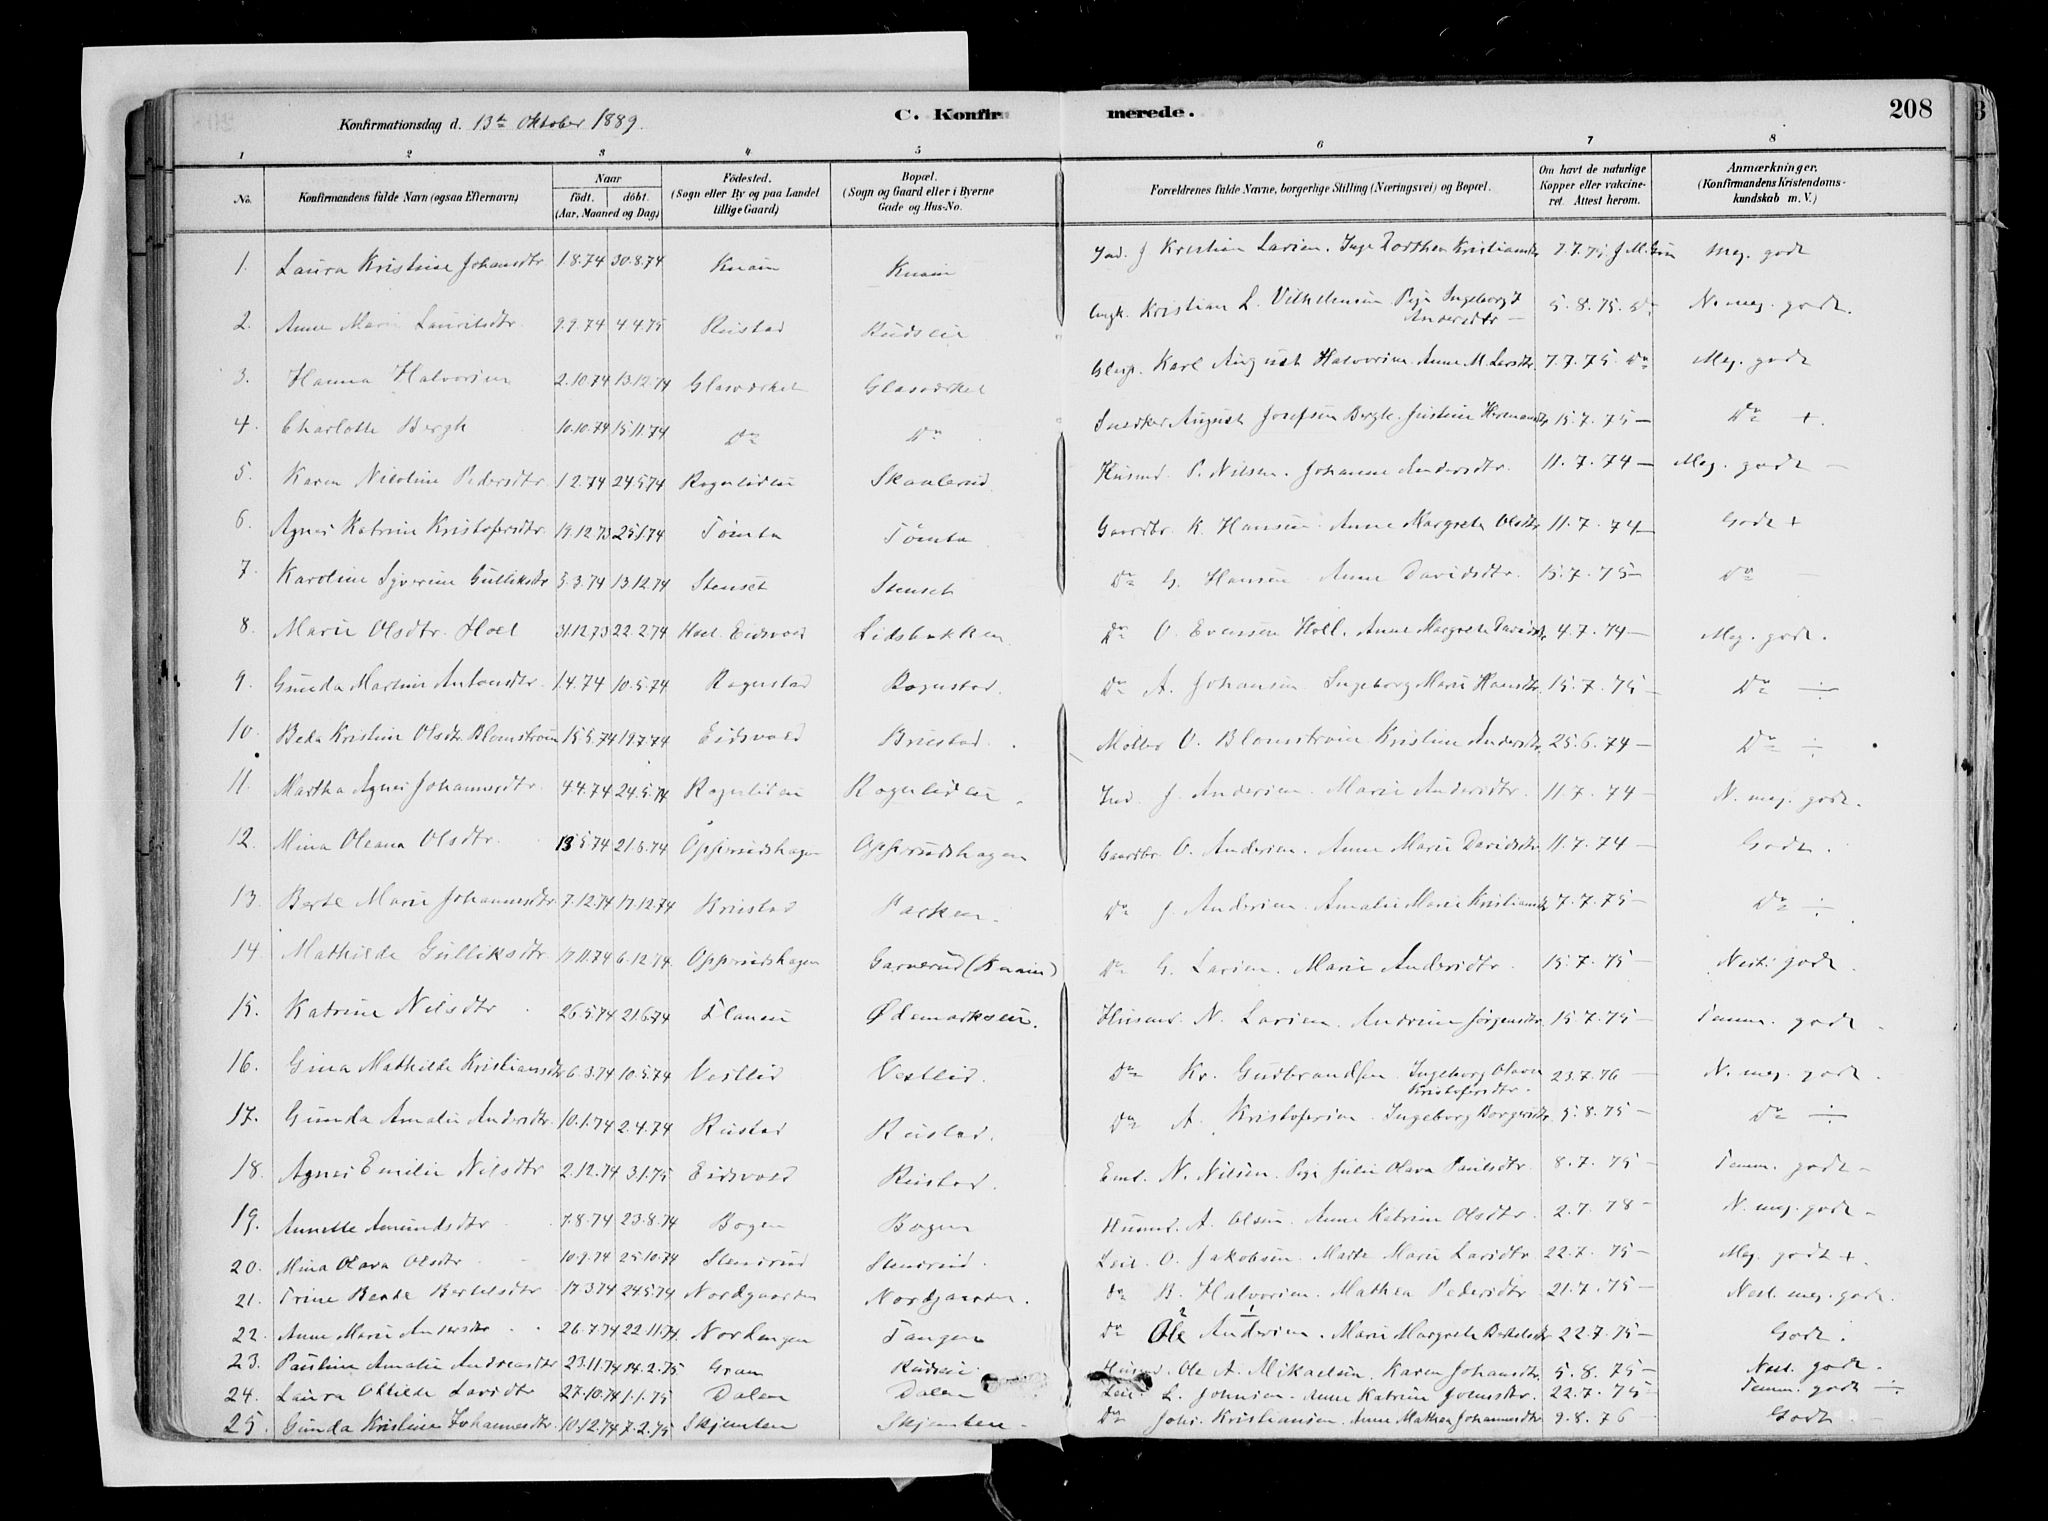 Konfirmationsdag d. 13de Oktober 1889.
C. Konfirmerede.
208
1 2 3 4 5 6 7 8
No.
Konfirmandens fulde Navn (ogsaa Efternavn)
Naar
født. døbt.
(Aar, Maaned og Dag)
Fødested.
(Sogn eller By og paa Landet
tillige Gaard)
Bopæl.
(Sogn og Gaard eller i Byerne
Gade og Hus-No.
Forældrenes fulde Navne, borgerlige Stilling (Næringsvei) og Bopæl.
Om havt de naturlige
Kopper eller vakcine-
ret. Attest herom.
Anmærkninger.
(Konfirmandens Kristendoms-
kundskab m. V.)
1. Laura Kristine Johansdtr 1.8.74 30.8.74 Knain Knain Ind. J Kristian Larsen. Inge Dorthea Kristiansdtr 7.7.75 J. M. Meg. godt
2. Anne Marie Lauritsdtr. 9.9.74 4.4.75 Rustad Rudseie Ungk. Kristian L. Vilhelmsen Pige Ingeborg J Andersdtr — 5.8.75. Do N. meg. godt.
3. Hanna Halvorsen 2.10.74 13.12.74 Glasværket Glasværket Glasp. Karl August Halvorsen. Anne M. Larsdtr. 7.7.75. Do Meg. godt
4. Charlotte Bergh 10.10.74 15.11.74 Do Do Snedker August Josefsen Bergh. Justine Hermansdtr 15.7.75 — Do +.
5. Karen Nicoline Pedersdtr. 1.2.74 24.5.74 Ragnlideie Skaalerud Husmd. P. Nilsen. Johanne Andersdtr. 11.7.74 — Meg. godt —
6. Agnes Katrine Kristofersdtr. 19.12.73 25.1.74 Tømta Tømta Gaardbr. K. Hansen. Anne Margrete Olsdtr 11.7.74 — Godt +
7. Karoline Syverine Gulliksdtr 5.3.74 13.12.74 Stenset Stenset Do G. Hansen Anne Davidsdtr. 15.7.75 — Do —
8. Marie Olsdtr. Hoel 31.12.73 22.2.74 Hoel Eidsvold Lidsbakken Do O. Evensen Hoel. Anne Margrete Davidsdtr 4.7.74 — Meg. godt.
9. Gunda Martine Antonsdtr. 1.4.74 10.5.74 Rognstad Rognstad. Do A. Johansen. Ingeborg Marie Hansdtr. 15.7.75 — Do ÷
10. Beda Kristine Olsdtr Blomstrøm 15.5.74 19.7.74 Eidsvold Brustad. Møller O. Blomstrøm Kristine Andersdtr. 25.6.74 — Do ÷
11. Martha Agnes Johannesdtr. 4.4.74 24.5.74 Ragnlideie Ragnlideie Ind. J. Andersen. Marie Andersdtr. 11.7.74 — N. meg. godt.
12. Mina Oleana Olsdtr. 13.5.74 21.6.74 Opperudshagen Opperudshagen Gaardbr. O. Andersen. Anne Marie Davidsdtr 11.7.74 — Godt.
13. Berte Marie Johannesdtr 7.12.74 17.12.74 Brustad Parken. Do J. Andersen. Amalie Marie Kristiansdtr 7.7.75 — Do ÷
14. Mathilde Gulliksdtr. 17.11.74 6.12.74. Opperudshagen Garnerud (Knain) Do G. Larsen. Marie Andersdtr. 15.7.75 — Nest. godt.
15. Katrine Nilsdtr 26.5.74 21.6.74 Flaneie Ødemarkseie. Husmd. N. Larsen. Andrine Jørgensdtr. 15.7.75 — Temm. godt
16. Gina Mathilde Kristiansdtr 6.3.74 10.5.74 Vestlid Vestlid. Do Kr. Gudbrandsen Ingeborg Olava Kristofersdtr. 23.7.76 — N. meg. godt.
17. Gunda Amalie Andersdtr. 10.1.74 2.4.74 Rustad Rustad. Do A. Kristofersen. Ingeborg Borgersdtr 5.8.75 — Do ÷
18. Agnes Emilie Nilsdtr 2.12.74 3.1.75 Eidsvold Rustad. Eml. N. Nilsen. Pige Julie Olava Paulsdtr. 8.7.75 — Temm. godt —
19. Annette Amundsdtr 7.8.74 23.8.74 Bogen Bogen Husmd. A. Olsen. Anne Katrine Olsdtr. 2.7.78 — N. meg. godt —
20. Mina Olava Olsdtr 10.9.74 25.10.74 Stensrud Stensrud. Leil. O. Jakobsen. Marte Marie Larsdtr. 22.7.75 — Meg. godt +
21. Trine Beate Bertelsdtr 17.3.74 24.5.74 Nordgaarden Nordgaarden. Do B. Halvorsen. Mathea Pedersdtr 21.7.75 — Nest. meg. godt.
22. Anne Marie Andersdtr 26.7.74 22.11.74. Nordengen Tangen Do 2 Ole 1 Andersen. Marie Margrete Bertelsdtr 22.7.75 — Godt.
23. Pauline Amalie Andreasdtr 23.11.74 14.2.75 Gran Rudseie Husmd. Ole A. Mikaelsen. Karen Johansdtr. 5.8.75 — Nest. godt.
24. Laura Ottilde Larsdtr 27.10.74 1.1.75 Dalen Dalen Leil. L. Johnsen. Anne Katrine Joensdtr. 22.7.75 — Temm. godt ÷
25. Gunda Kristine Johannesdtr. 10.12.74 7.2.75 Skjenten Skjenten — Do Johs. Kristiansen. Anne Mathea Johannesdtr — 9.8.76 Godt —